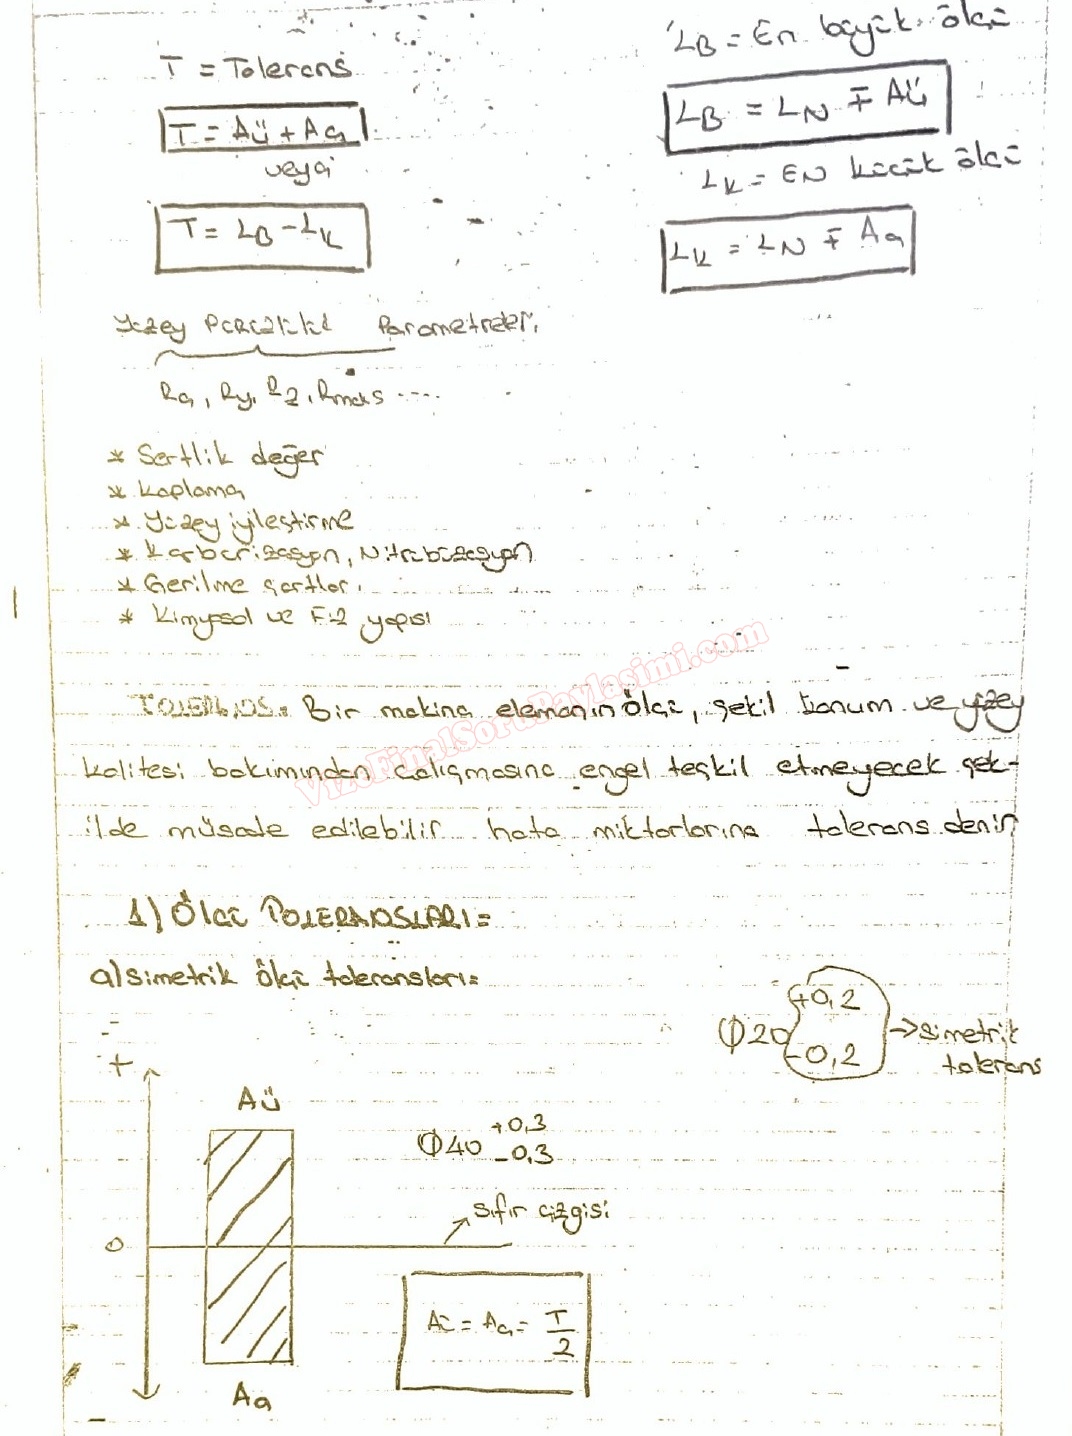 T = Tolerans
T = Aü + Aa
veya
T = LB - LK
LB = En büyük ölçü
LB = LN ∓ Aü
LK = EN küçük ölçü
LK = LN ∓ Aa
Yüzey Pürüzlülük Parametreleri
Ra, Ry, Rz, Rmaks ....
* Sertlik değer
* Kaplama
* Yüzey iyileştirme
* Karbürizasyon,
* Gerilme şartları
* Kimyasal ve Fiz yapısı
VizeFinalSoruPaylasimi.com
TOLERANS = Bir makina elemanın ölçü, şekil konum ve yüzey
kalitesi bakımından çalışmasına engel teşkil etmeyecek şek-
ilde müsade edilebilir hata miktarlarına tolerans denir
1) ÖLÇÜ TOLERANSLARI =
a) Simetrik ölçü toleransları =
Φ20 +0,2 -0,2 → simetrik
tolerans
+
Aü
Φ40 +0,3 -0,3
sıfır çizgisi
0
Aü = Aa = T/2
Aa
-